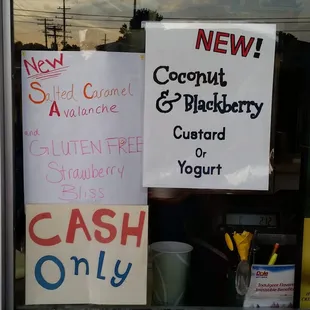 New
Salted Caramel
Avalanche
and
GLUTEN FREE
Strawberry
Bliss
CASH
Only
NEW!
Coconut
& Blackberry
Custard
Or
Yogurt
Dole